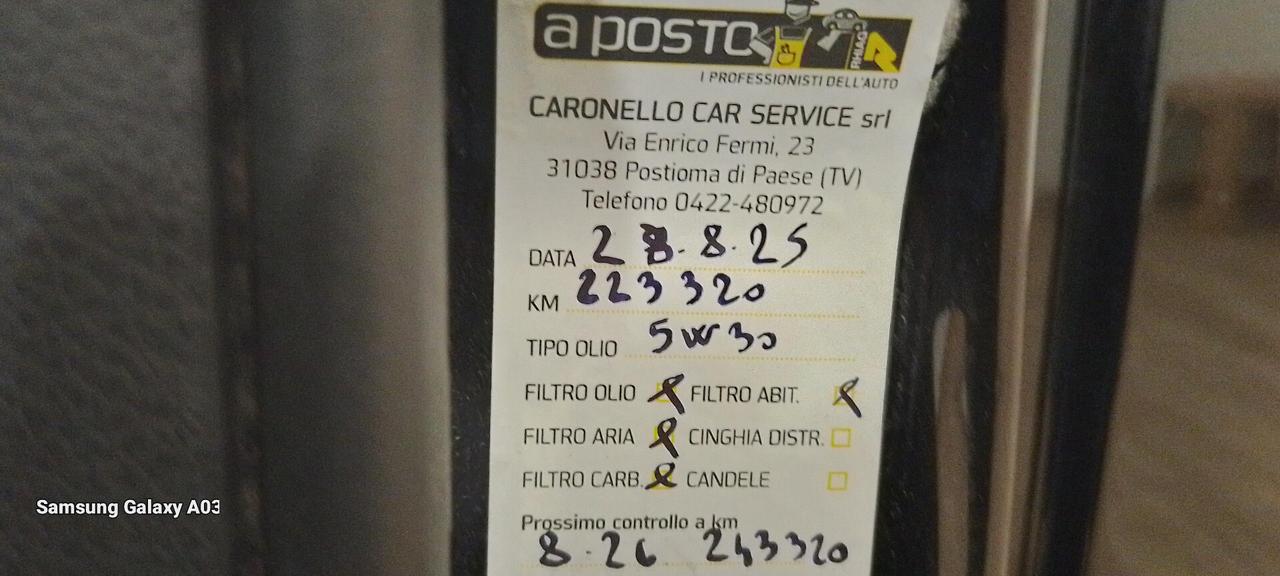 a posto
RHIAG
I PROFESSIONISTI DELL'AUTO
CARONELLO CAR SERVICE srl
Via Enrico Fermi, 23
31038 Postioma di Paese (TV)
Telefono 0422-480972
DATA 28.8.25
KM 223320
TIPO OLIO 5W30
FILTRO OLIO FILTRO ABIT.
FILTRO ARIA CINGHIA DISTR.
FILTRO CARB. CANDELE
Prossimo controllo a km
8.26 243320
Samsung Galaxy A03